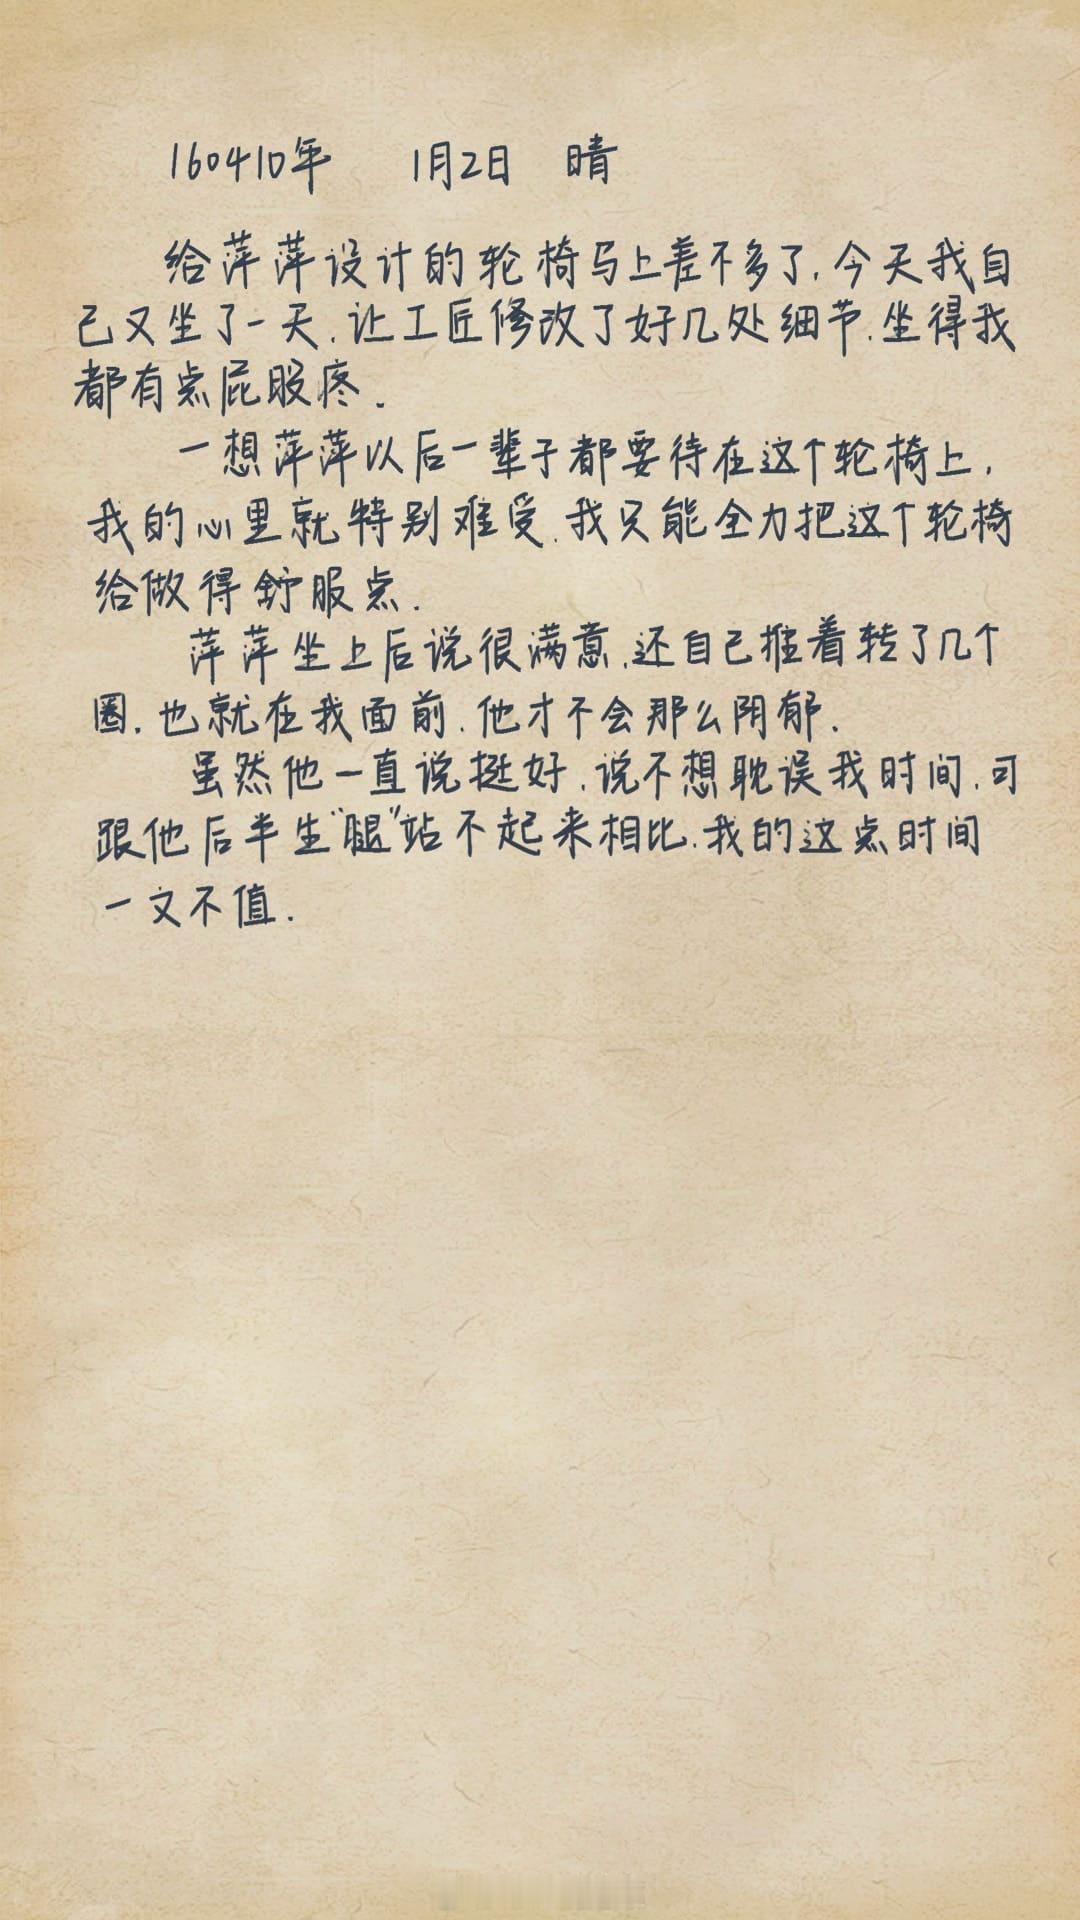 160410年 1月2日 晴
给萍萍设计的轮椅马上差不多了.今天我自
己又坐了一天.让工匠修改了好几处细节.坐得我
都有点屁股疼.
一想萍萍以后一辈子都要待在这个轮椅上,
我的心里就特别难受.我只能全力把这个轮椅
给做得舒服点.
萍萍坐上后说很满意.还自己推着转了几个
圈.也就在我面前.他才不会那么阴郁.
虽然他一直说挺好.说不想耽误我时间.可
跟他后半生"腿"站不起来相比.我的这点时间
一文不值.